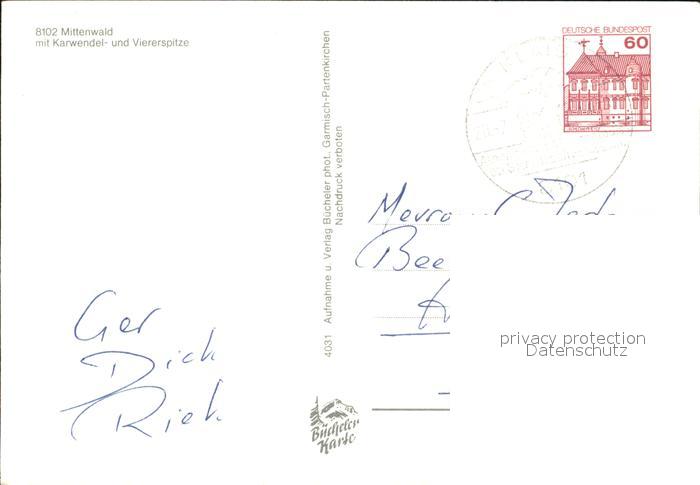 8102 Mittenwald
mit Karwendel- und Viererspitze
4031 Aufnahme u. Verlag Bücheler phot. Garmisch-Partenkirchen
Nachdruck verboten
DEUTSCHE BUNDESPOST
60
Ger
Dick
Riek
Bee
privacy protection
Datenschutz
Bücheler
Karte